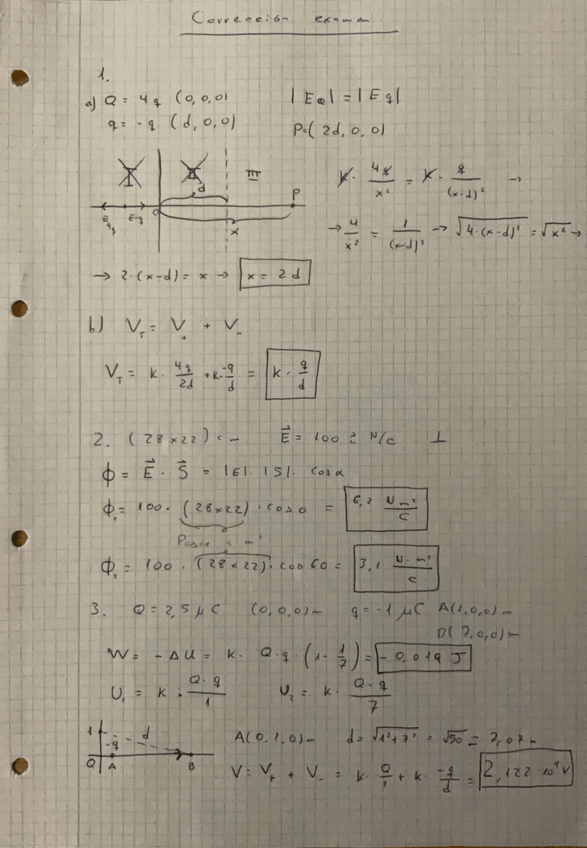 Corrección examen
1.
a) Q = 4q (0,0,0) |E_Q| = |E_q|
q = -q (d,0,0) P=(2d,0,0)
I II III
d
P
0
x
k · 4q/x² = k · q/(x-d)² →
→ 4/x² = 1/(x-d)² → √(4·(x-d)²) = √x² →
→ 2·(x-d) = x → x = 2d
b) V_T = V_+ + V_-
V_T = k · 4q/2d + k · -q/d = k · q/d
2. (28×22) cm E⃗ = 100 i N/C ⊥
ϕ = E⃗ · S⃗ = |E| · |S| · cos α
ϕ₁ = 100 · (28×22) · cos 0 = 6,2 N·m²/C
Pasar a m²
ϕ₂ = 100 · (28×22) · cos 60 = 3,1 N·m²/C
3. Q = 2,5 μC (0,0,0)m q = -1 μC A(1,0,0)m
B(7,0,0)m
W = -ΔU = k · Q·q · (1 - 1/7) = -0,019 J
U₁ = k · Q·q/1 U₂ = k · Q·q/7
1 d
-q
Q A B
A(0,1,0)m d = √(1²+7²) = √50 = 7,07m
V = V_+ + V_- = k · Q/7 + k · -q/d = 2,122·10⁴ V